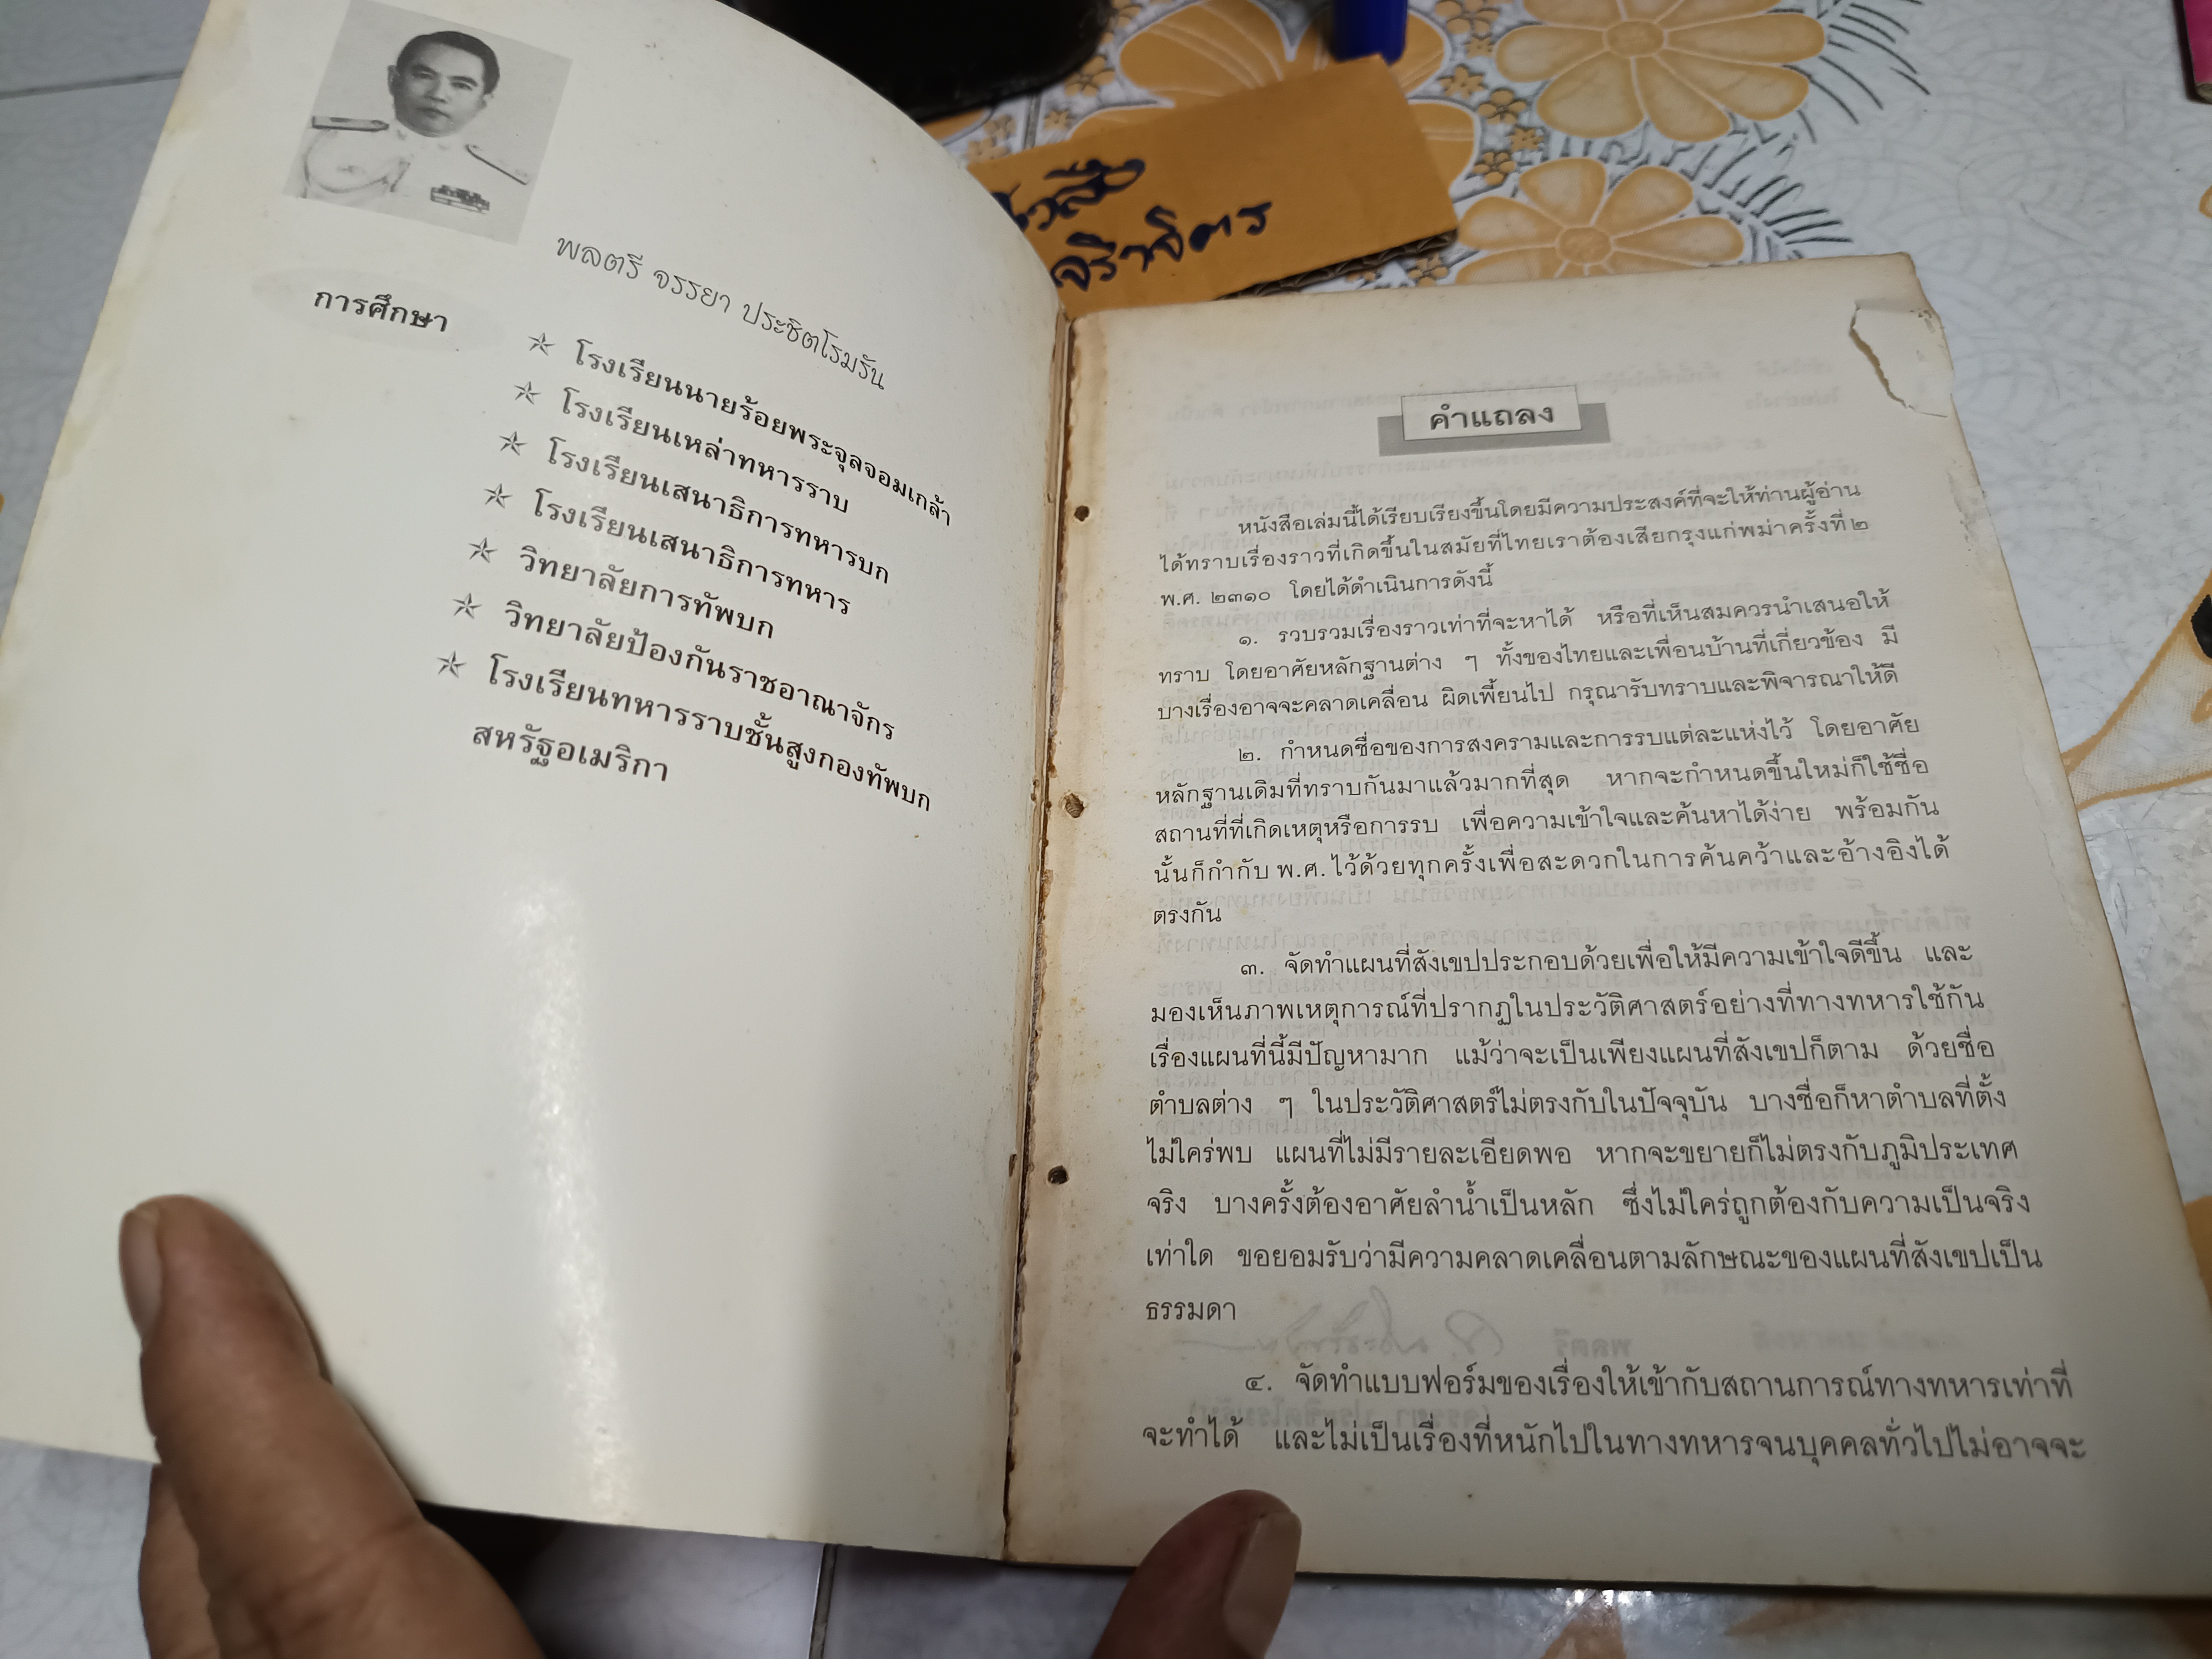 พลตรี จรรยา ประชิตโรมรัน
การศึกษา
โรงเรียนนายร้อยพระจุลจอมเกล้า
โรงเรียนเหล่าทหารราบ
โรงเรียนเสนาธิการทหารบก
โรงเรียนเสนาธิการทหาร
วิทยาลัยการทัพบก
วิทยาลัยป้องกันราชอาณาจักร
โรงเรียนทหารราบชั้นสูงกองทัพบก
สหรัฐอเมริกา
คำแถลง
หนังสือเล่มนี้ได้เรียบเรียงขึ้นโดยมีความประสงค์ที่จะให้ท่านผู้อ่าน
ได้ทราบเรื่องราวที่เกิดขึ้นในสมัยที่ไทยเราต้องเสียกรุงแก่พม่าครั้งที่ ๒
พ.ศ. ๒๓๑๐ โดยได้ดำเนินการดังนี้
๑. รวบรวมเรื่องราวเท่าที่จะหาได้ หรือที่เห็นสมควรนำเสนอให้
ทราบ โดยอาศัยหลักฐานต่าง ๆ ทั้งของไทยและเพื่อนบ้านที่เกี่ยวข้อง มี
บางเรื่องอาจจะคลาดเคลื่อน ผิดเพี้ยนไป กรุณารับทราบและพิจารณาให้ดี
๒. กำหนดชื่อของการสงครามและการรบแต่ละแห่งไว้ โดยอาศัย
หลักฐานเดิมที่ทราบกันมาแล้วมากที่สุด หากจะกำหนดขึ้นใหม่ก็ใช้ชื่อ
สถานที่ที่เกิดเหตุหรือการรบ เพื่อความเข้าใจและค้นหาได้ง่าย พร้อมกัน
นั้นก็กำกับ พ.ศ. ไว้ด้วยทุกครั้งเพื่อสะดวกในการค้นคว้าและอ้างอิงได้
ตรงกัน
๓. จัดทำแผนที่สังเขปประกอบด้วยเพื่อให้มีความเข้าใจดีขึ้น และ
มองเห็นภาพเหตุการณ์ที่ปรากฏในประวัติศาสตร์อย่างที่ทางทหารใช้กัน
เรื่องแผนที่นี้มีปัญหามาก แม้ว่าจะเป็นเพียงแผนที่สังเขปก็ตาม ด้วยชื่อ
ตำบลต่าง ๆ ในประวัติศาสตร์ไม่ตรงกับในปัจจุบัน บางชื่อก็หาตำบลที่ตั้ง
ไม่ใคร่พบ แผนที่ไม่มีรายละเอียดพอ หากจะขยายก็ไม่ตรงกับภูมิประเทศ
จริง บางครั้งต้องอาศัยลำน้ำเป็นหลัก ซึ่งไม่ใคร่ถูกต้องกับความเป็นจริง
เท่าใด ขอยอมรับว่ามีความคลาดเคลื่อนตามลักษณะของแผนที่สังเขปเป็น
ธรรมดา
๔. จัดทำแบบฟอร์มของเรื่องให้เข้ากับสถานการณ์ทางทหารเท่าที่
จะทำได้ และไม่เป็นเรื่องที่หนักไปในทางทหารจนบุคคลทั่วไปไม่อาจจะ